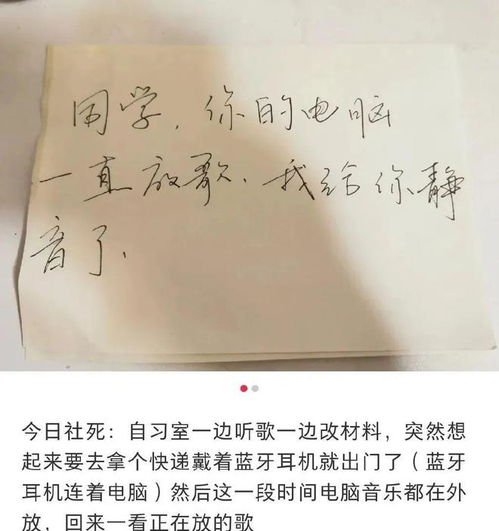 同学，你的电脑
一直放歌，我给你静
音了.
今日社死：自习室一边听歌一边改材料，突然想
起来要去拿个快递戴着蓝牙耳机就出门了（蓝牙
耳机连着电脑）然后这一段时间电脑音乐都在外
放，回来一看正在放的歌